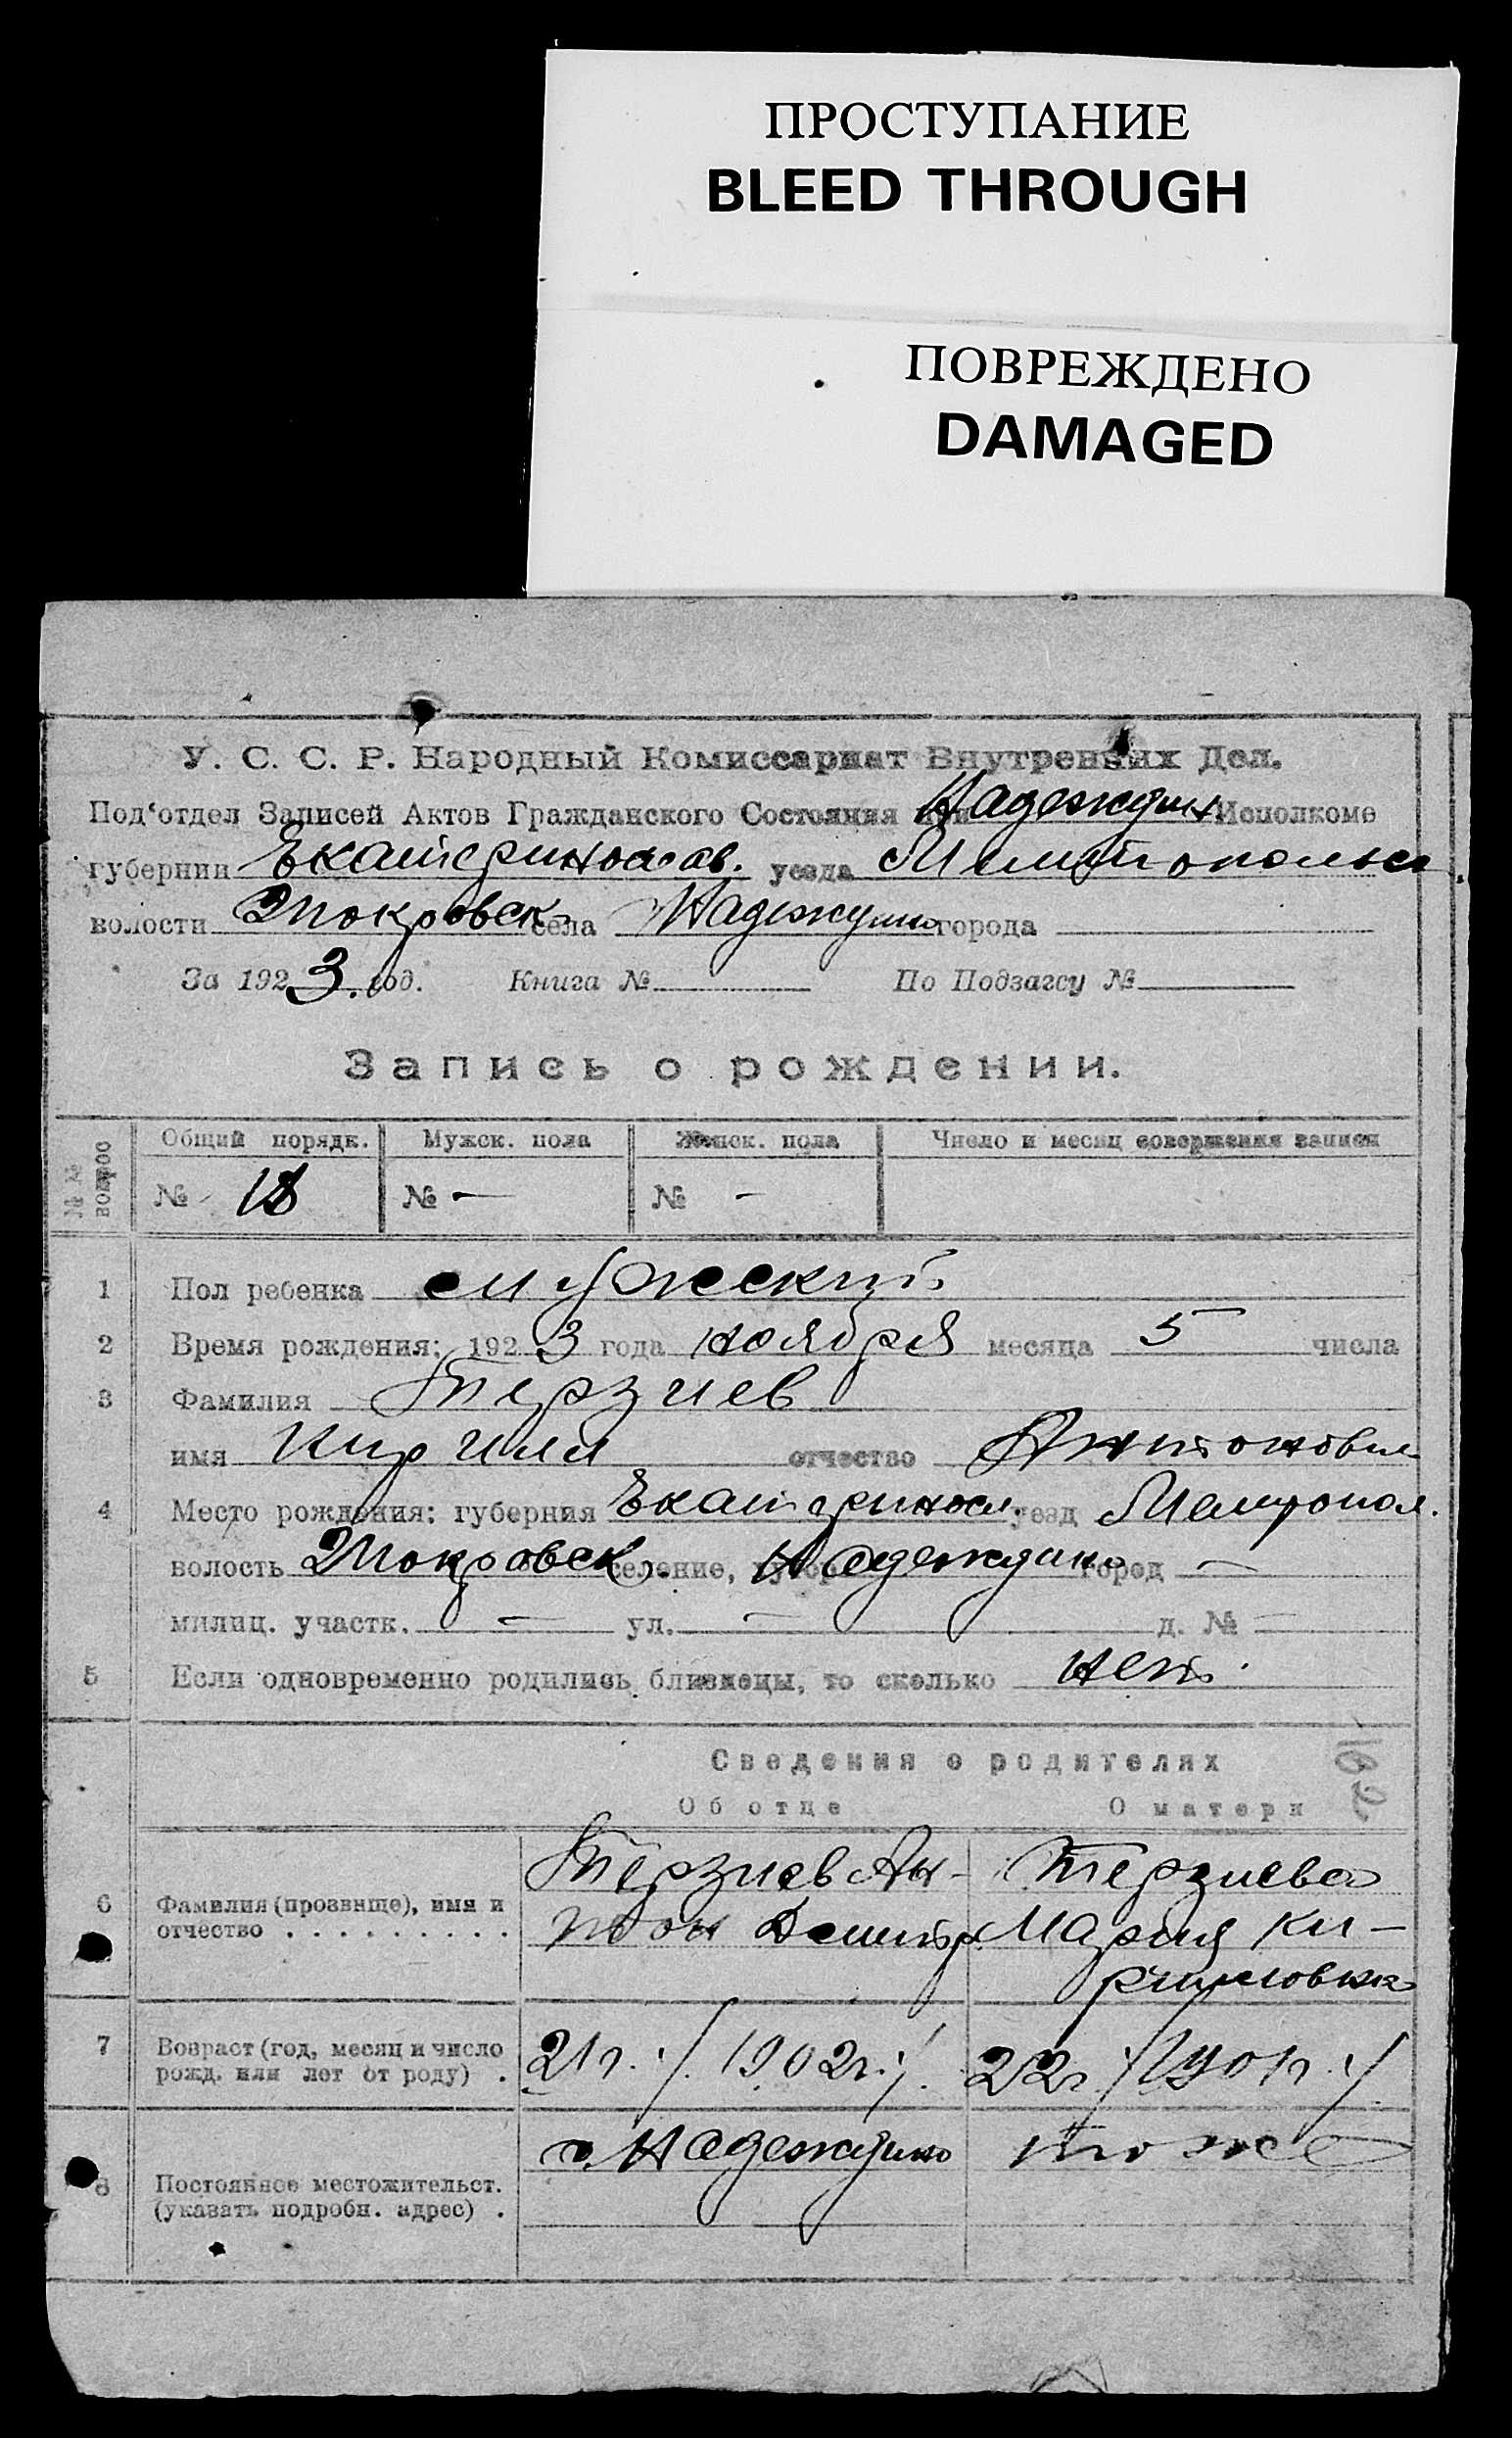 ПРОСТУПАНИЕ
BLEED THROUGH
ПОВРЕЖДЕНО
DAMAGED
У. С. С. Р. Народный Комиссариат Внутренних Дел.
Под‘отдел Записей Актов Гражданского Состояния при Надеждин. Исполкоме
губернии Екатеринослав. уезда Мелитопольск.
волости Покровск. села Надеждино города
За 1923. год. Книга № По Подзагсу №
Запись о рождении.
№№ вопрос
Общий порядк. Мужск. пола Женск. пола Число и месяц совершения записи
№ 18 № — № -
1 Пол ребенка мужеский
2 Время рождения: 1923 года ноября месяца 5 числа
3 Фамилия Терзиев
имя Кирилл отчество Антонович
4 Место рождения: губерния Екатериносл. уезд Мелитопол.
волость Покровск. селение, хутор Надеждино город —
милиц. участк. — ул. — д. № —
5 Если одновременно родились близнецы, то сколько нет.
Сведения о родителях
162
Об отце О матери
Терзиев Ан- Терзиева
6 Фамилия (прозвище), имя и
отчество . . . . . . . . . тон Дмитр. Мария Ки-
рилловна
7 Возраст (год, месяц и число
рожд. или лет от роду) . 21 г. /. 1902 г. /. 22 г. /. 1901 г. /.
с. Надеждино то же
8 Постоянное местожительст.
(указать подробн. адрес) .